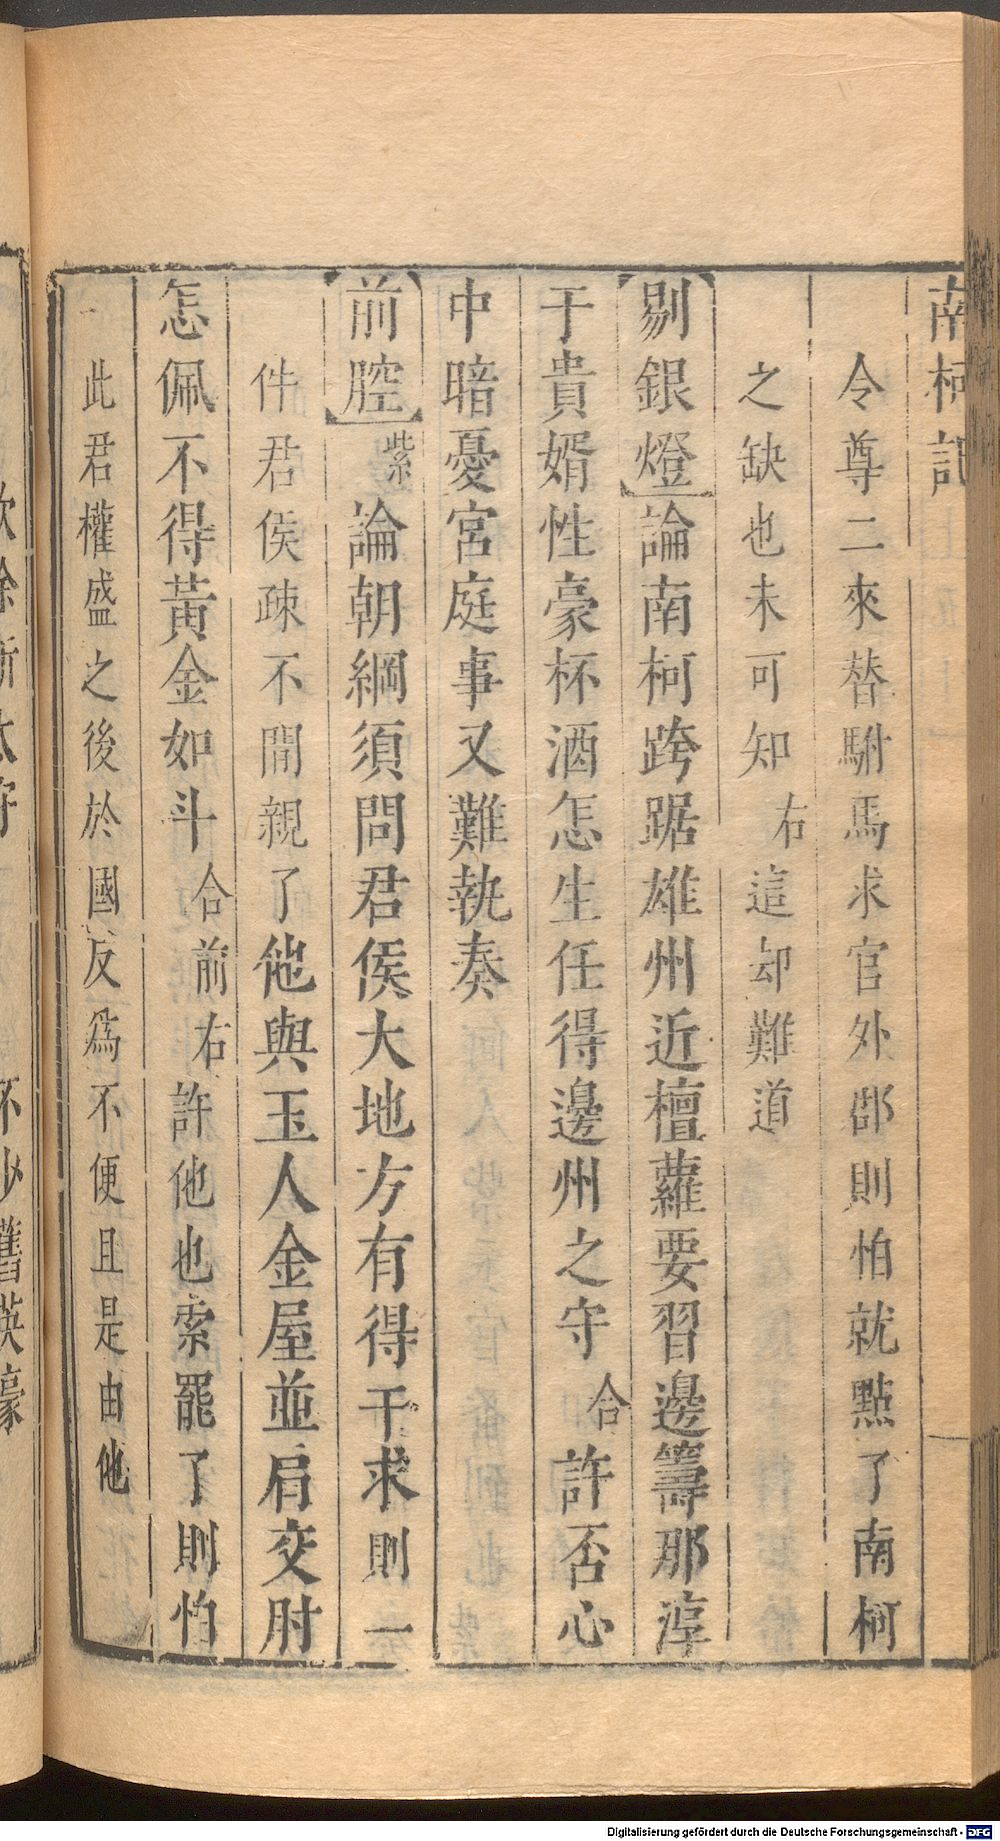 南柯記
令尊二來替駙馬求官外郡則怕就㸃了南柯
之缺也未可知右這却難道
剔銀燈論南柯跨踞雄州近檀蘿要習邊籌那淳
于貴婿性豪杯酒怎生任得邊州之守合許否心
中暗憂宮庭事又難執奏
前腔紫論朝綱須問君侯大地方有得干求則一
件君侯疎不間親了他與玉人金屋並肩交肘
怎佩不得黃金如斗合前右許他也索罷了則怕
此君權盛之後於國反爲不便且是由他
Digitalisierung gefördert durch die Deutsche Forschungsgemeinschaft - DFG